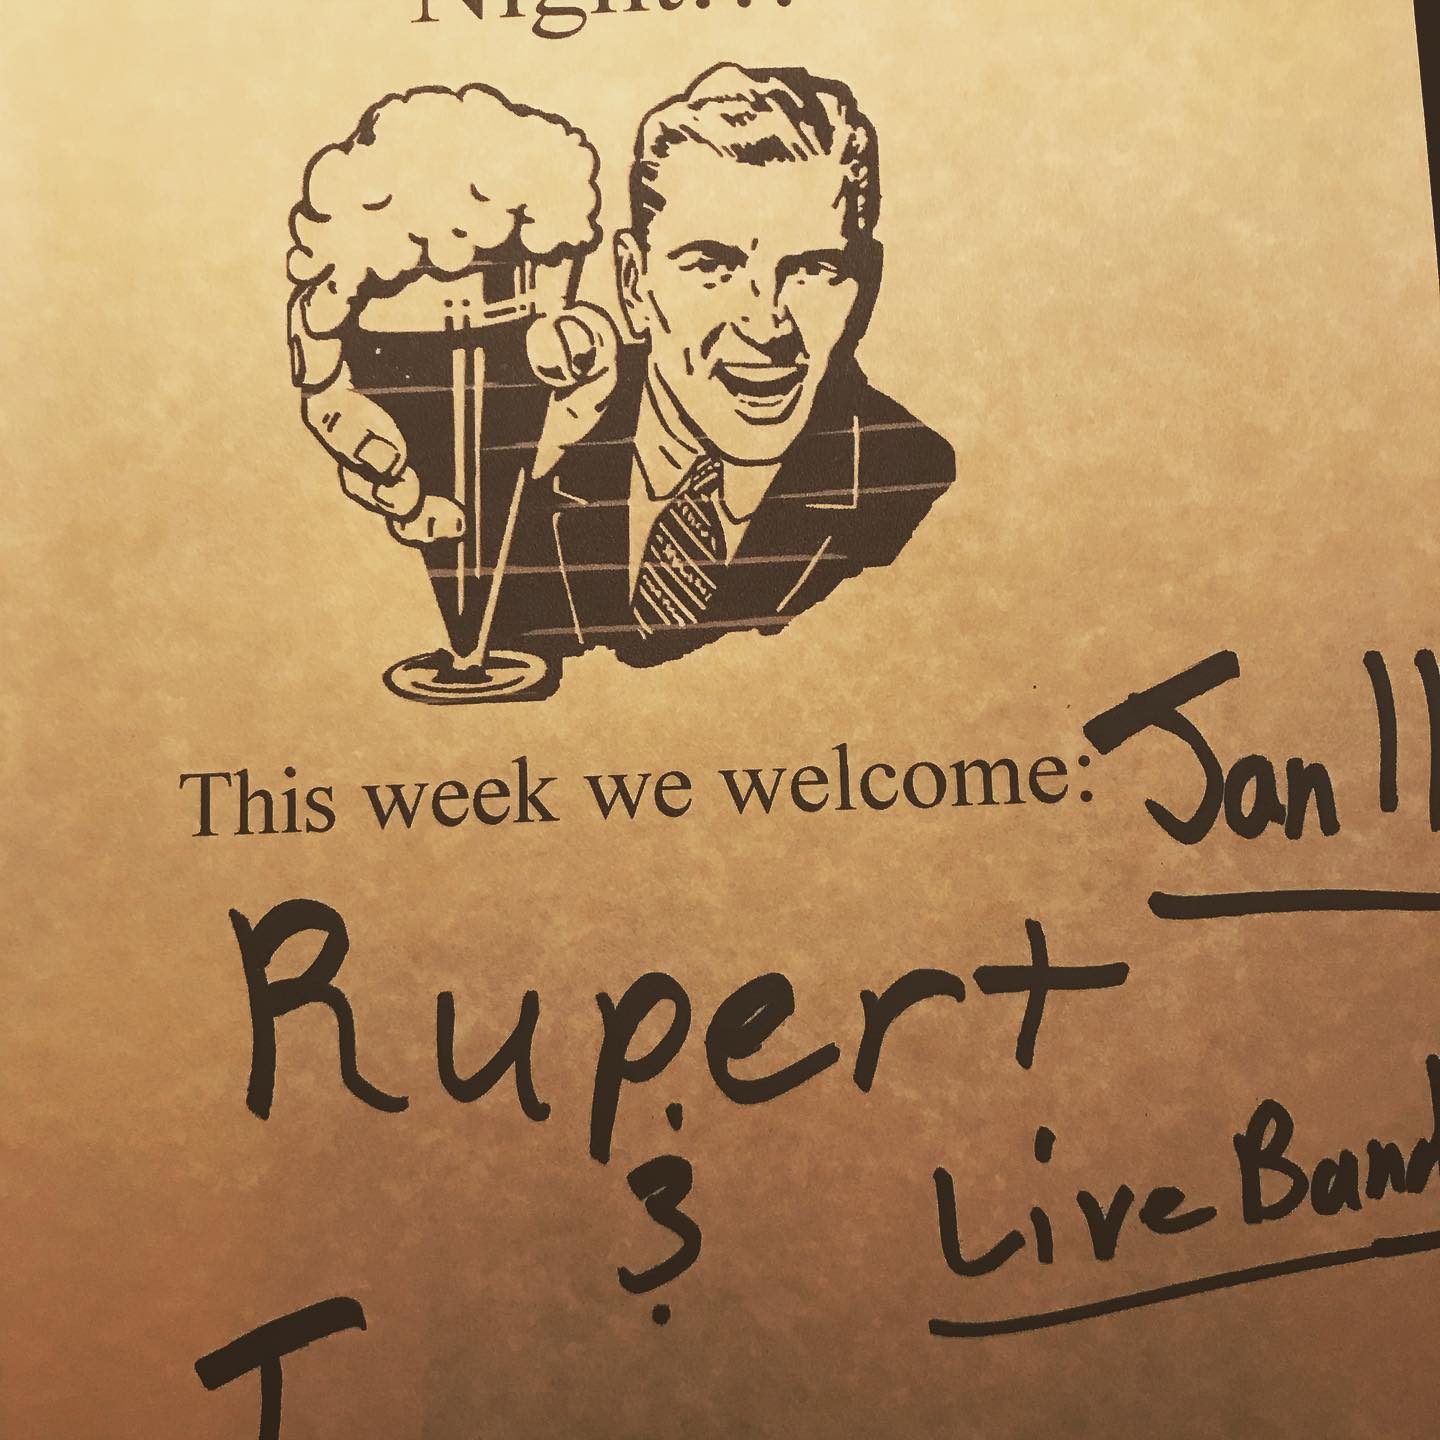 Night...
This week we welcome: Jan 11
Rupert
&
Live Band